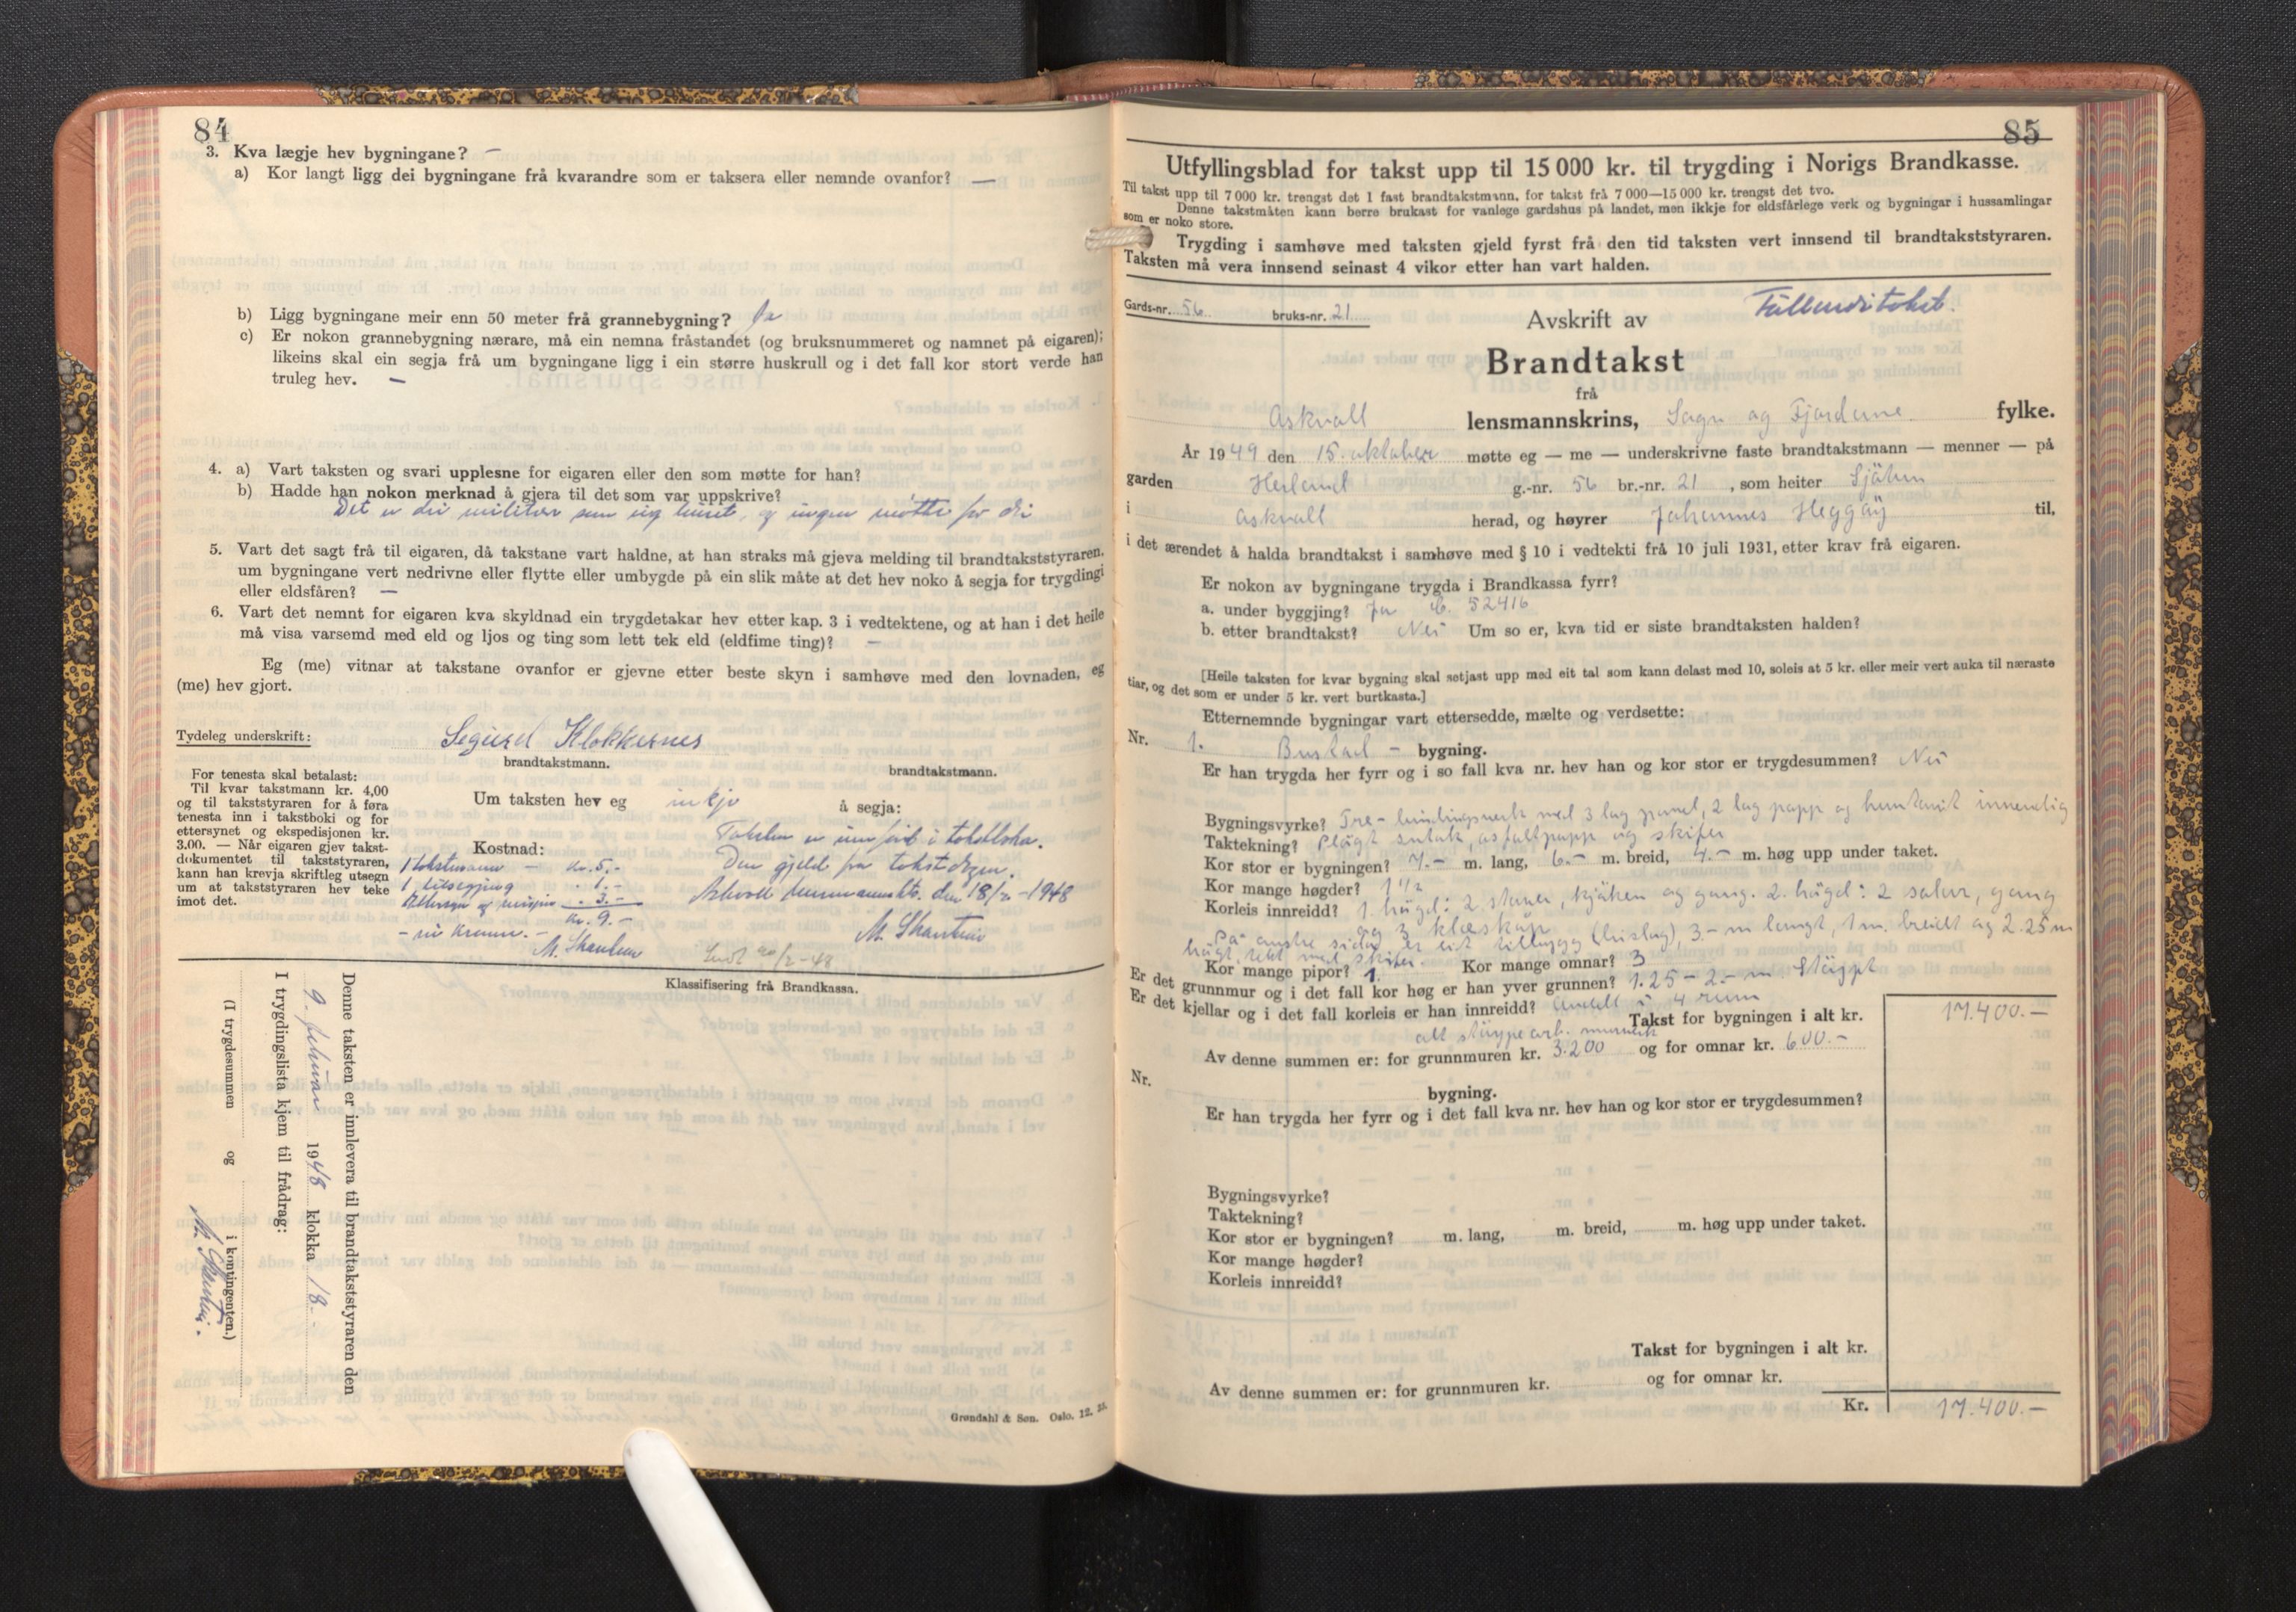 84
3. Kva lægje hev bygningane? –
a) Kor langt ligg dei bygningane frå kvarandre som er taksera eller nemnde ovanfor? —
b) Ligg bygningane meir enn 50 meter frå grannebygning? Ja
c) Er nokon grannebygning nærare, må ein nemna fråstandet (og bruksnummeret og namnet på eigaren);
likeins skal ein segja frå um bygningane ligg i ein større huskrull og i det fall kor stort verde han
truleg hev. –
4. a) Vart taksten og svari upplesne for eigaren eller den som møtte for han?
b) Hadde han nokon merknad å gjera til det som var uppskrive?
Det er dei militær som eig huset, og ingen møtte for dei
5. Vart det sagt frå til eigaren, då takstane vart haldne, at han straks må gjeva melding til brandtakststyraren,
um bygningane vert nedrivne eller flytte eller umbygde på ein slik måte at det hev noko å segja for trygdingi
eller eldsfåren? –
6. Vart det nemnt for eigaren kva skyldnad ein trygdetakar hev etter kap. 3 i vedtektene, og at han i det heile
må visa varsemd med eld og ljos og ting som lett tek eld (eldfime ting)? –
Eg (me) vitnar at takstane ovanfor er gjevne etter beste skyn i samhøve med den lovnaden, eg
(me) hev gjort.
Tydeleg underskrift: Sigurd Klokkernes
brandtakstmann. brandtakstmann.
For tenesta skal betalast:
Til kvar takstmann kr. 4,00
og til takststyraren for å føra
tenesta inn i takstboki og for
ettersynet og ekspedisjonen kr.
3.00. — Når eigaren gjev takst-
dokumentet til takststyraren,
kann han krevja skriftleg utsegn
um at takststyraren hev teke
imot det.
Um taksten hev eg inkje å segja:
Taksten er innførd i takstboka.
Den gjeld frå takstdagen.
Askvoll lensmannskt. den 18/2 -1948
M. Skautun
Kostnad:
1 takstmann – kr. 5.-
1 tilsegjing " 1.-
" 3.-
kr. 9.-
- ni kroner. -
M. Skautun
Sendt 20/2-48
Klassifisering frå Brandkassa.
Denne taksten er innlevera til brandtakststyraren den
9. februar 1948 klokka 18.
I trygdingslista kjem til frådrag:
(I trygdesummen og i kontingenten.)
M. Skautun.
Grøndahl & Søn. Oslo. 12. 35.
85
Utfyllingsblad for takst upp til 15 000 kr. til trygding i Norigs Brandkasse.
Til takst upp til 7 000 kr. trengst det 1 fast brandtakstmann, for takst frå 7 000—15 000 kr. trengst det tvo.
Denne takstmåten kann berre brukast for vanlege gardshus på landet, men ikkje for eldsfårlege verk og bygningar i hussamlingar
som er noko store.
Trygding i samhøve med taksten gjeld fyrst frå den tid taksten vert innsend til brandtakststyraren.
Taksten må vera innsend seinast 4 vikor etter han vart halden.
Gards-nr. 56 bruks-nr. 21
Avskrift av
Brandtakst
frå
Askvoll lensmannskrins, Sogn og Fjordane fylke.
År 1949 den 15. oktober møtte eg — me — underskrivne faste brandtakstmann — menner — på
garden Herland g.-nr. 56 br.-nr. 21, som heiter Sjåtun
i Askvoll herad, og høyrer Johannes Heggøy til,
i det ærendet å halda brandtakst i samhøve med § 10 i vedtekti frå 10 juli 1931, etter krav frå eigaren.
Er nokon av bygningane trygda i Brandkassa fyrr?
a. under byggjing? Ja 52416
b. etter brandtakst? Nei Um so er, kva tid er siste brandtaksten halden?
[Heile taksten for kvar bygning skal setjast upp med eit tal som kann delast med 10, soleis at 5 kr. eller meir vert auka til næraste
tiar, og det som er under 5 kr. vert burtkasta.]
Etternemnde bygningar vart ettersedde, mælte og verdsette:
Nr. 1. Bustad – bygning.
Er han trygda her fyrr og i so fall kva nr. hev han og kor stor er trygdesummen? Nei
Bygningsvyrke? Tre – bindingsverk med 3 lag panel, 2 lag papp og huntonit innvendig
Taktekning? Pløgt sutak, asfaltpapp og skifer
Kor stor er bygningen? 7.– m. lang, 6.– m. breid, 4.– m. høg upp under taket.
Kor mange høgder? 1 1/2
Korleis innreidd? 1. høgd: 2 stover, kjøken og gang. 2. høgd: 2 salar, gang
og 3 klæskåp
På austre sida er eit tilbygg (bislag), 3.– m langt, 1 m. breidt og 2.25 m
høgt, tekt med skifer.
Kor mange pipor? 1. Kor mange omnar? 3
Er det grunnmur og i det fall kor høg er han yver grunnen? 1.25 – 2.– m. Støypt
Er det kjellar og i det fall korleis er han innreidd? Avdelt i 4 rum
Takst for bygningen i alt kr. 17.400.–
alt støypearb. murverk
Av denne summen er: for grunnmuren kr. 3.200 og for omnar kr. 600.–
Nr. bygning.
Er han trygda her fyrr og i det fall kva nr. hev han og kor stor er trygdesummen?
Bygningsvyrke?
Taktekning?
Kor stor er bygningen? m. lang, m. breid, m. høg upp under taket.
Kor mange høgder?
Korleis innreidd?
Takst for bygningen i alt kr.
Av denne summen er: for grunnmuren kr. og for omnar kr.
Kr. 17.400.–